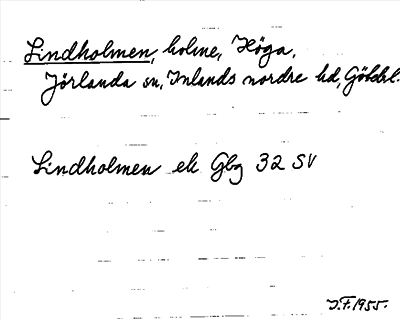 Lindholmen, holme, Höga,
Jörlanda sn, Inlands nordre hd, Göb.l.
Lindholmen ek Gbg 32 SV
J.F. 1955.